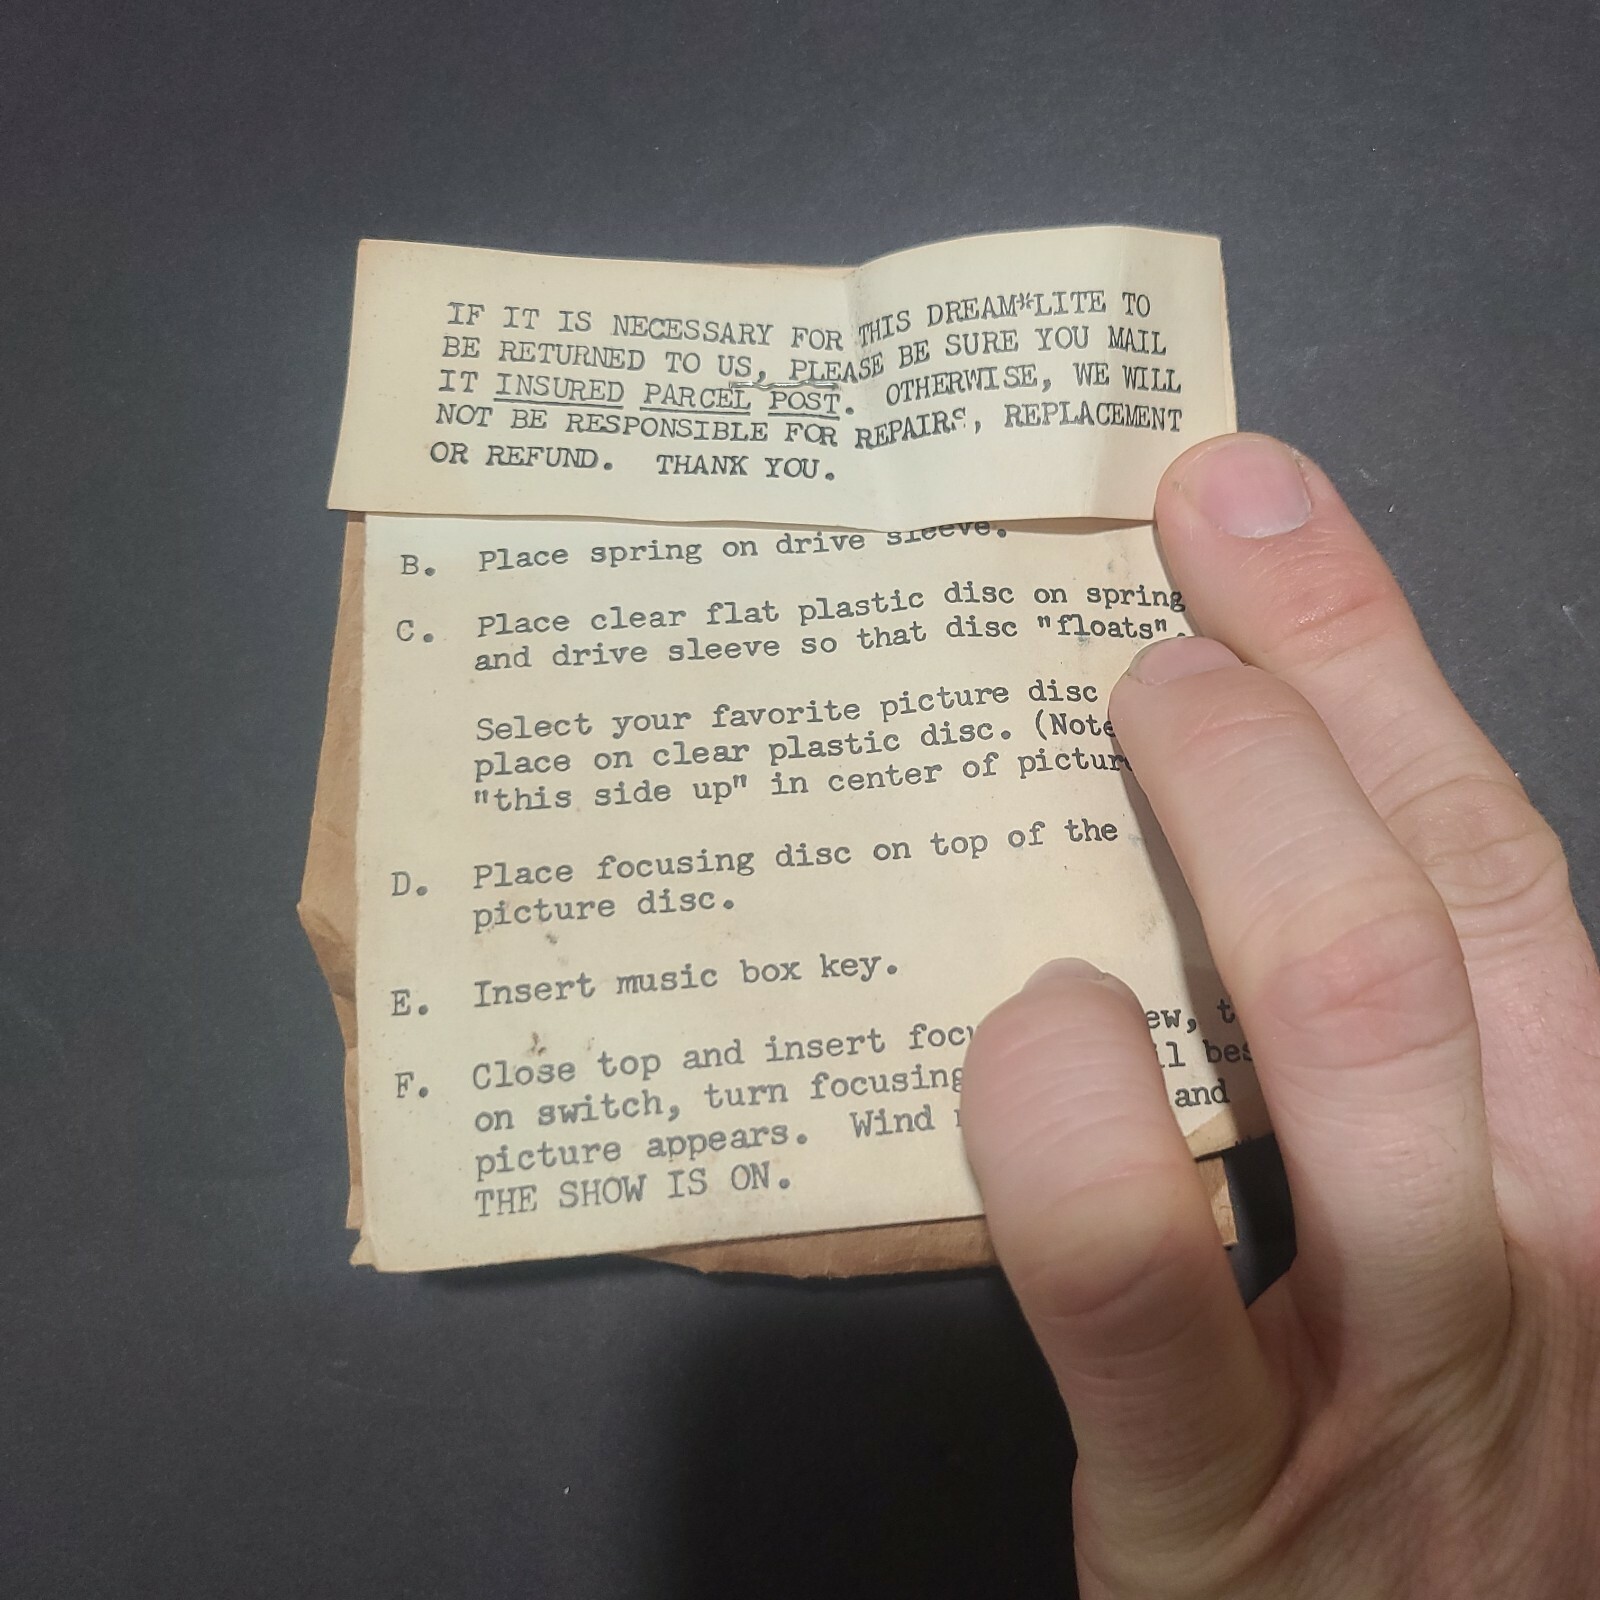 IF IT IS NECESSARY FOR THIS DREAM*LITE TO
BE RETURNED TO US, PLEASE BE SURE YOU MAIL
IT INSURED PARCEL POST. OTHERWISE, WE WILL
NOT BE RESPONSIBLE FOR REPAIRS, REPLACEMENT
OR REFUND. THANK YOU.
B. Place spring on drive sleeve.
C. Place clear flat plastic disc on spring
and drive sleeve so that disc "floats".
Select your favorite picture disc
place on clear plastic disc. (Note
"this side up" in center of
D. Place focusing disc on top of the
picture disc.
E. Insert music box key.
F. Close top and insert
on switch, turn focusing
picture appears. Wind and
THE SHOW IS ON.